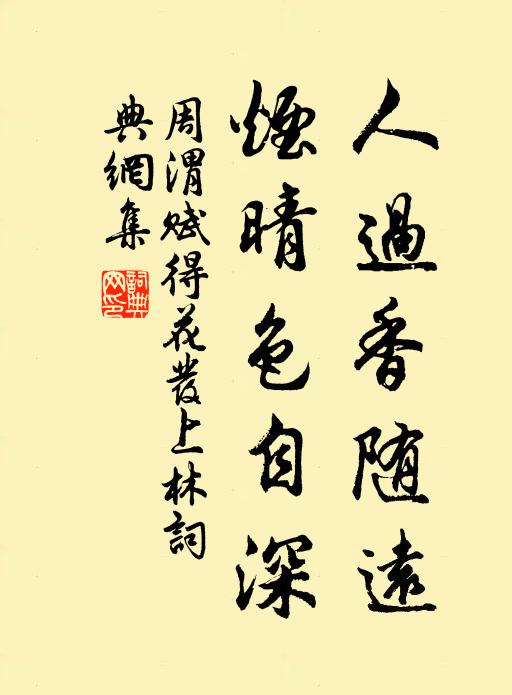 人過香隨遠
煙晴色自深
周渭賦得花發上林詞
典網集
詞典
网印